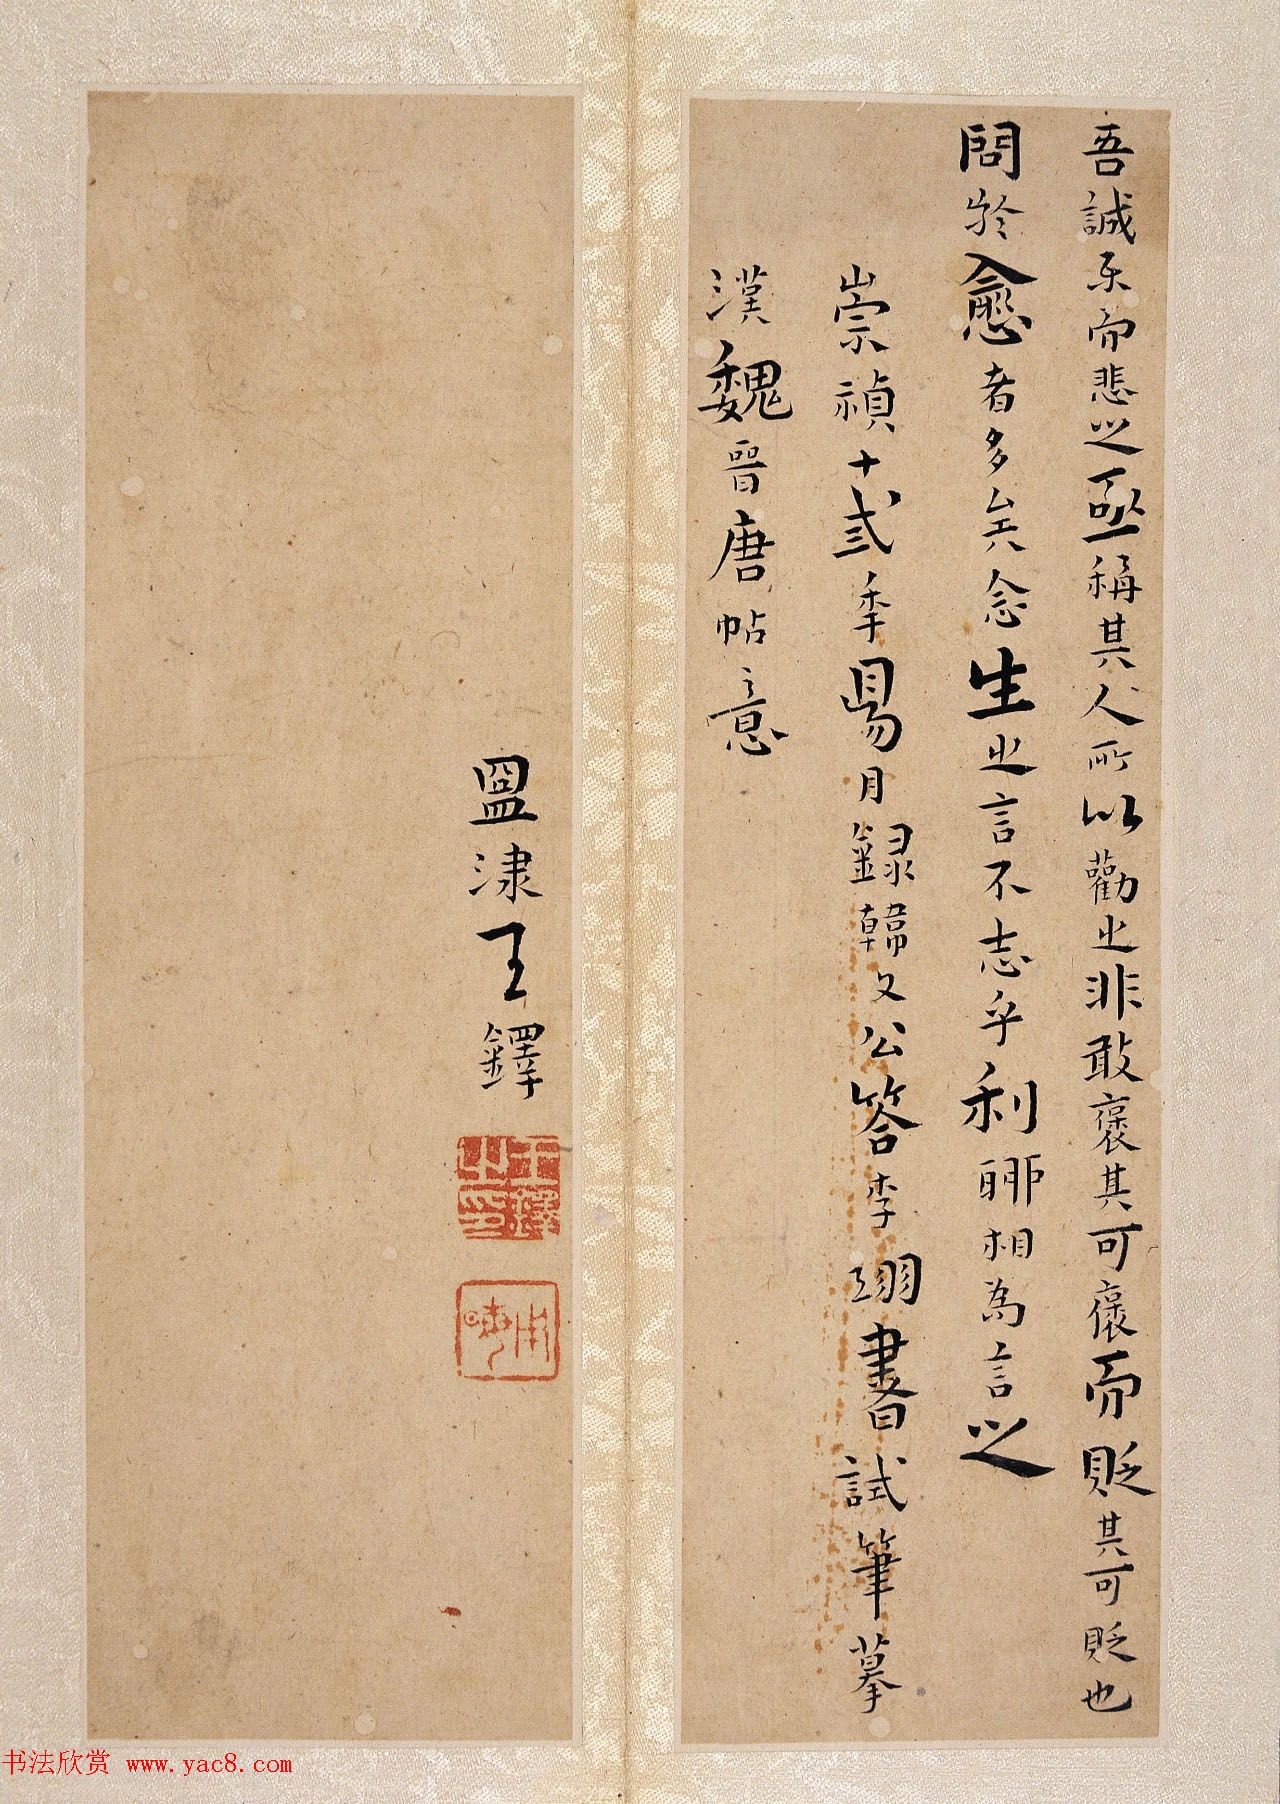 吾誠樂而悲之亟稱其人所以勸之非敢褒其可褒而貶其可貶也
問於愈者多矣念生之言不志乎利聊相為言之
崇禎十貳季昜月錄韓文公答李翊書試筆摹
漢魏晉唐帖意
孟津王鐸
王鐸之印
书法欣赏 www.yac8.com